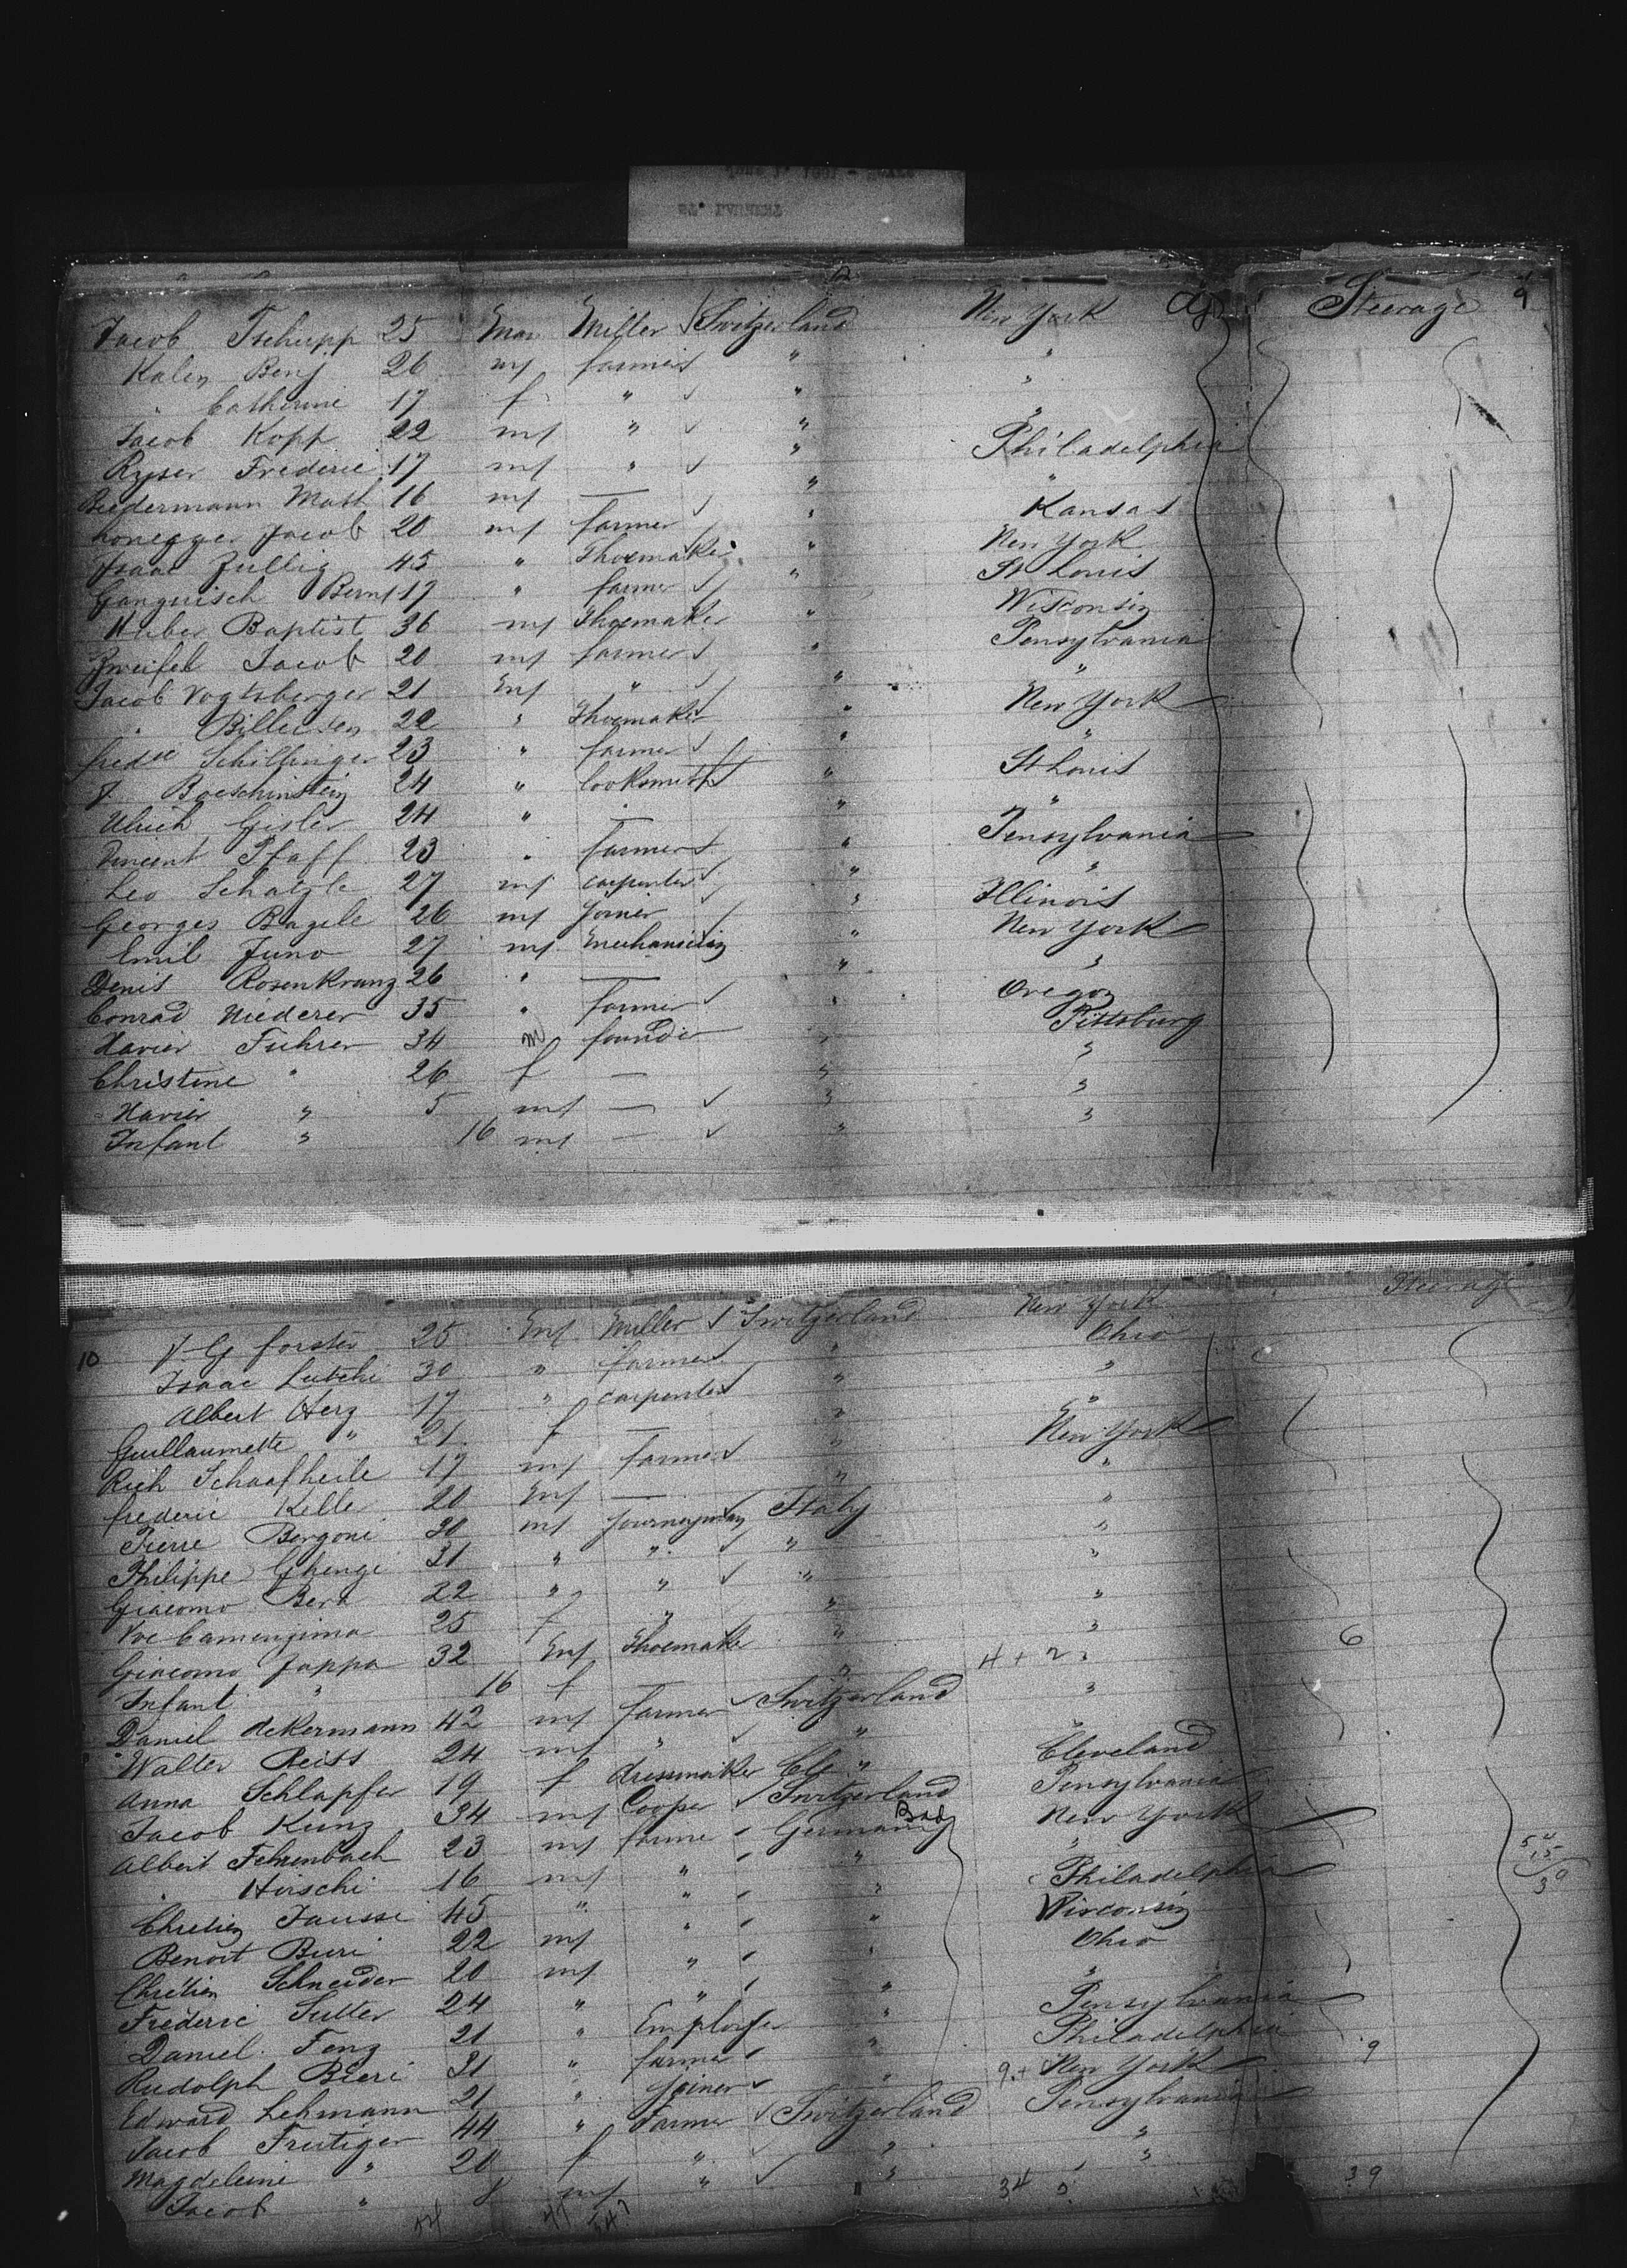 Steerage 9
Jacob Tschupp 25 Mas Miller √ Switzerland New York
Kalen Benj 26 m/ farmer " "
" Catherine 17 f " √ " "
Jacob Kopp 22 m/ " √ " "
Ryser Frederic 17 m/ " √ " Philadelphia
Biedermann Math 16 m/ — √ " "
honegger Jacob 20 m/ farmer √ " Kansas
Isaac Zullig 45 " Shoemaker " New York
Gangnisch Bern/ 17 " farmer √ " St Louis
Huber Baptist 36 m/ Shoemaker " Wisconsin
Zweifel Jacob 20 m/ farmer √ " Pensylvania
Jacob Vogtsberger 21 m/ " √ " "
" Billeisen 22 " Shoemaker " New York
fred Schillinger 23 " farmer √ " "
J. Boeschinstein 24 " locksmith √ " St Louis
Ulrich Gisler 24 " — " "
Vincent Pfaff 23 " farmer √ " Pensylvania
Leo Schatzle 27 m/ carpenter √ " "
Georges Bagele 26 m/ Joiner √ " Illinois
Emil Juno 27 m/ mechanician " New York
Denis Rosenkranz 26 " — " "
Conrad Niederer 35 " farmer √ " Oregon
Xavier Fuhrer 34 m founder " Pittsburg
Christine " 26 f — " "
Xavier " 5 m/ — √ " "
Infant " 16 m/ — √ " "
Steerage
10 J. G forster 25 m/ Miller √ Switzerland New York
Isaac Lutchi 30 " farmer √ " Ohio
Albert Herz 17 " carpenter √ " "
Guillaumette " 21 f — " "
Rich Schaafheile 17 m/ farmer √ " New York
frederic Kelle 20 m/ — " "
Pierre Borgoni 30 m/ Journeyman Italy "
Philippe Ghengi 31 " " √ " "
Giacomo Bera 22 " " √ " "
Vve Camenzima 25 f " " "
Giacomo Jappa 32 m/ Shoemaker " " 6
Infant " 16 f — " 4 + 2
Daniel dekermann 42 m/ farmer √ Switzerland "
Walter Reiss 24 m/ " √ " "
Anna Schlapfer 19 f dressmaker " Cleveland
Jacob Kunz 34 m/ Cooper √ Switzerland Pensylvania
Albert Fehrenbach 23 m/ farme Germany Bad New York
" Hirschi 16 m/ " " "
Chretien Jausse 45 " " " Philadelphia
Benoit Buri 22 m/ " " Wisconsin
Chretien Schneider 20 m/ " " Ohio
Frederic Sutter 24 " " " "
Daniel Fenz 21 " Employe " Pensylvania
Rudolph Bieri 31 " farmer " Philadelphia
Edward Lehmann 21 " Joiner " 9 + New York 9
Jacob Frutiger 44 " Farmer √ Switzerland Pensylvania
Magdeleine " 20 f " √ " "
Jacob " 8 m/ " √ " "
34 39